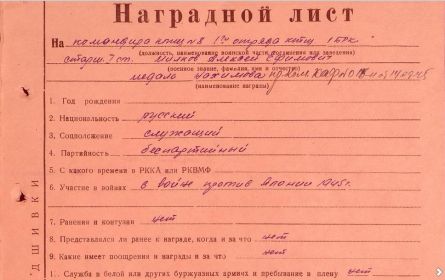 Наградной лист
На командира ктщ №8 1го отряда ктщ 1БРК
(должность, наименование воинской части, соединения или заведения)
старш. 2 ст. Алексей Ефимович
(военное звание, фамилия, имя и отчество)
медаль Нахимова
(наименование награды)
1. Год рождения
2. Национальность русский
3. Соцположение служащий
4. Партийность беспартийный
5. С какого времени в РККА или РКВМФ
6. Участие в войнах в войне против Японии 1945г.
7. Ранения и контузии нет
8. Представлялся ли ранее к награде, когда и за что нет
9. Какие имеет поощрения и награды и за что нет
Служба в белой или других буржуазных армиях и пребывание в плену нет
ДШИВКИ